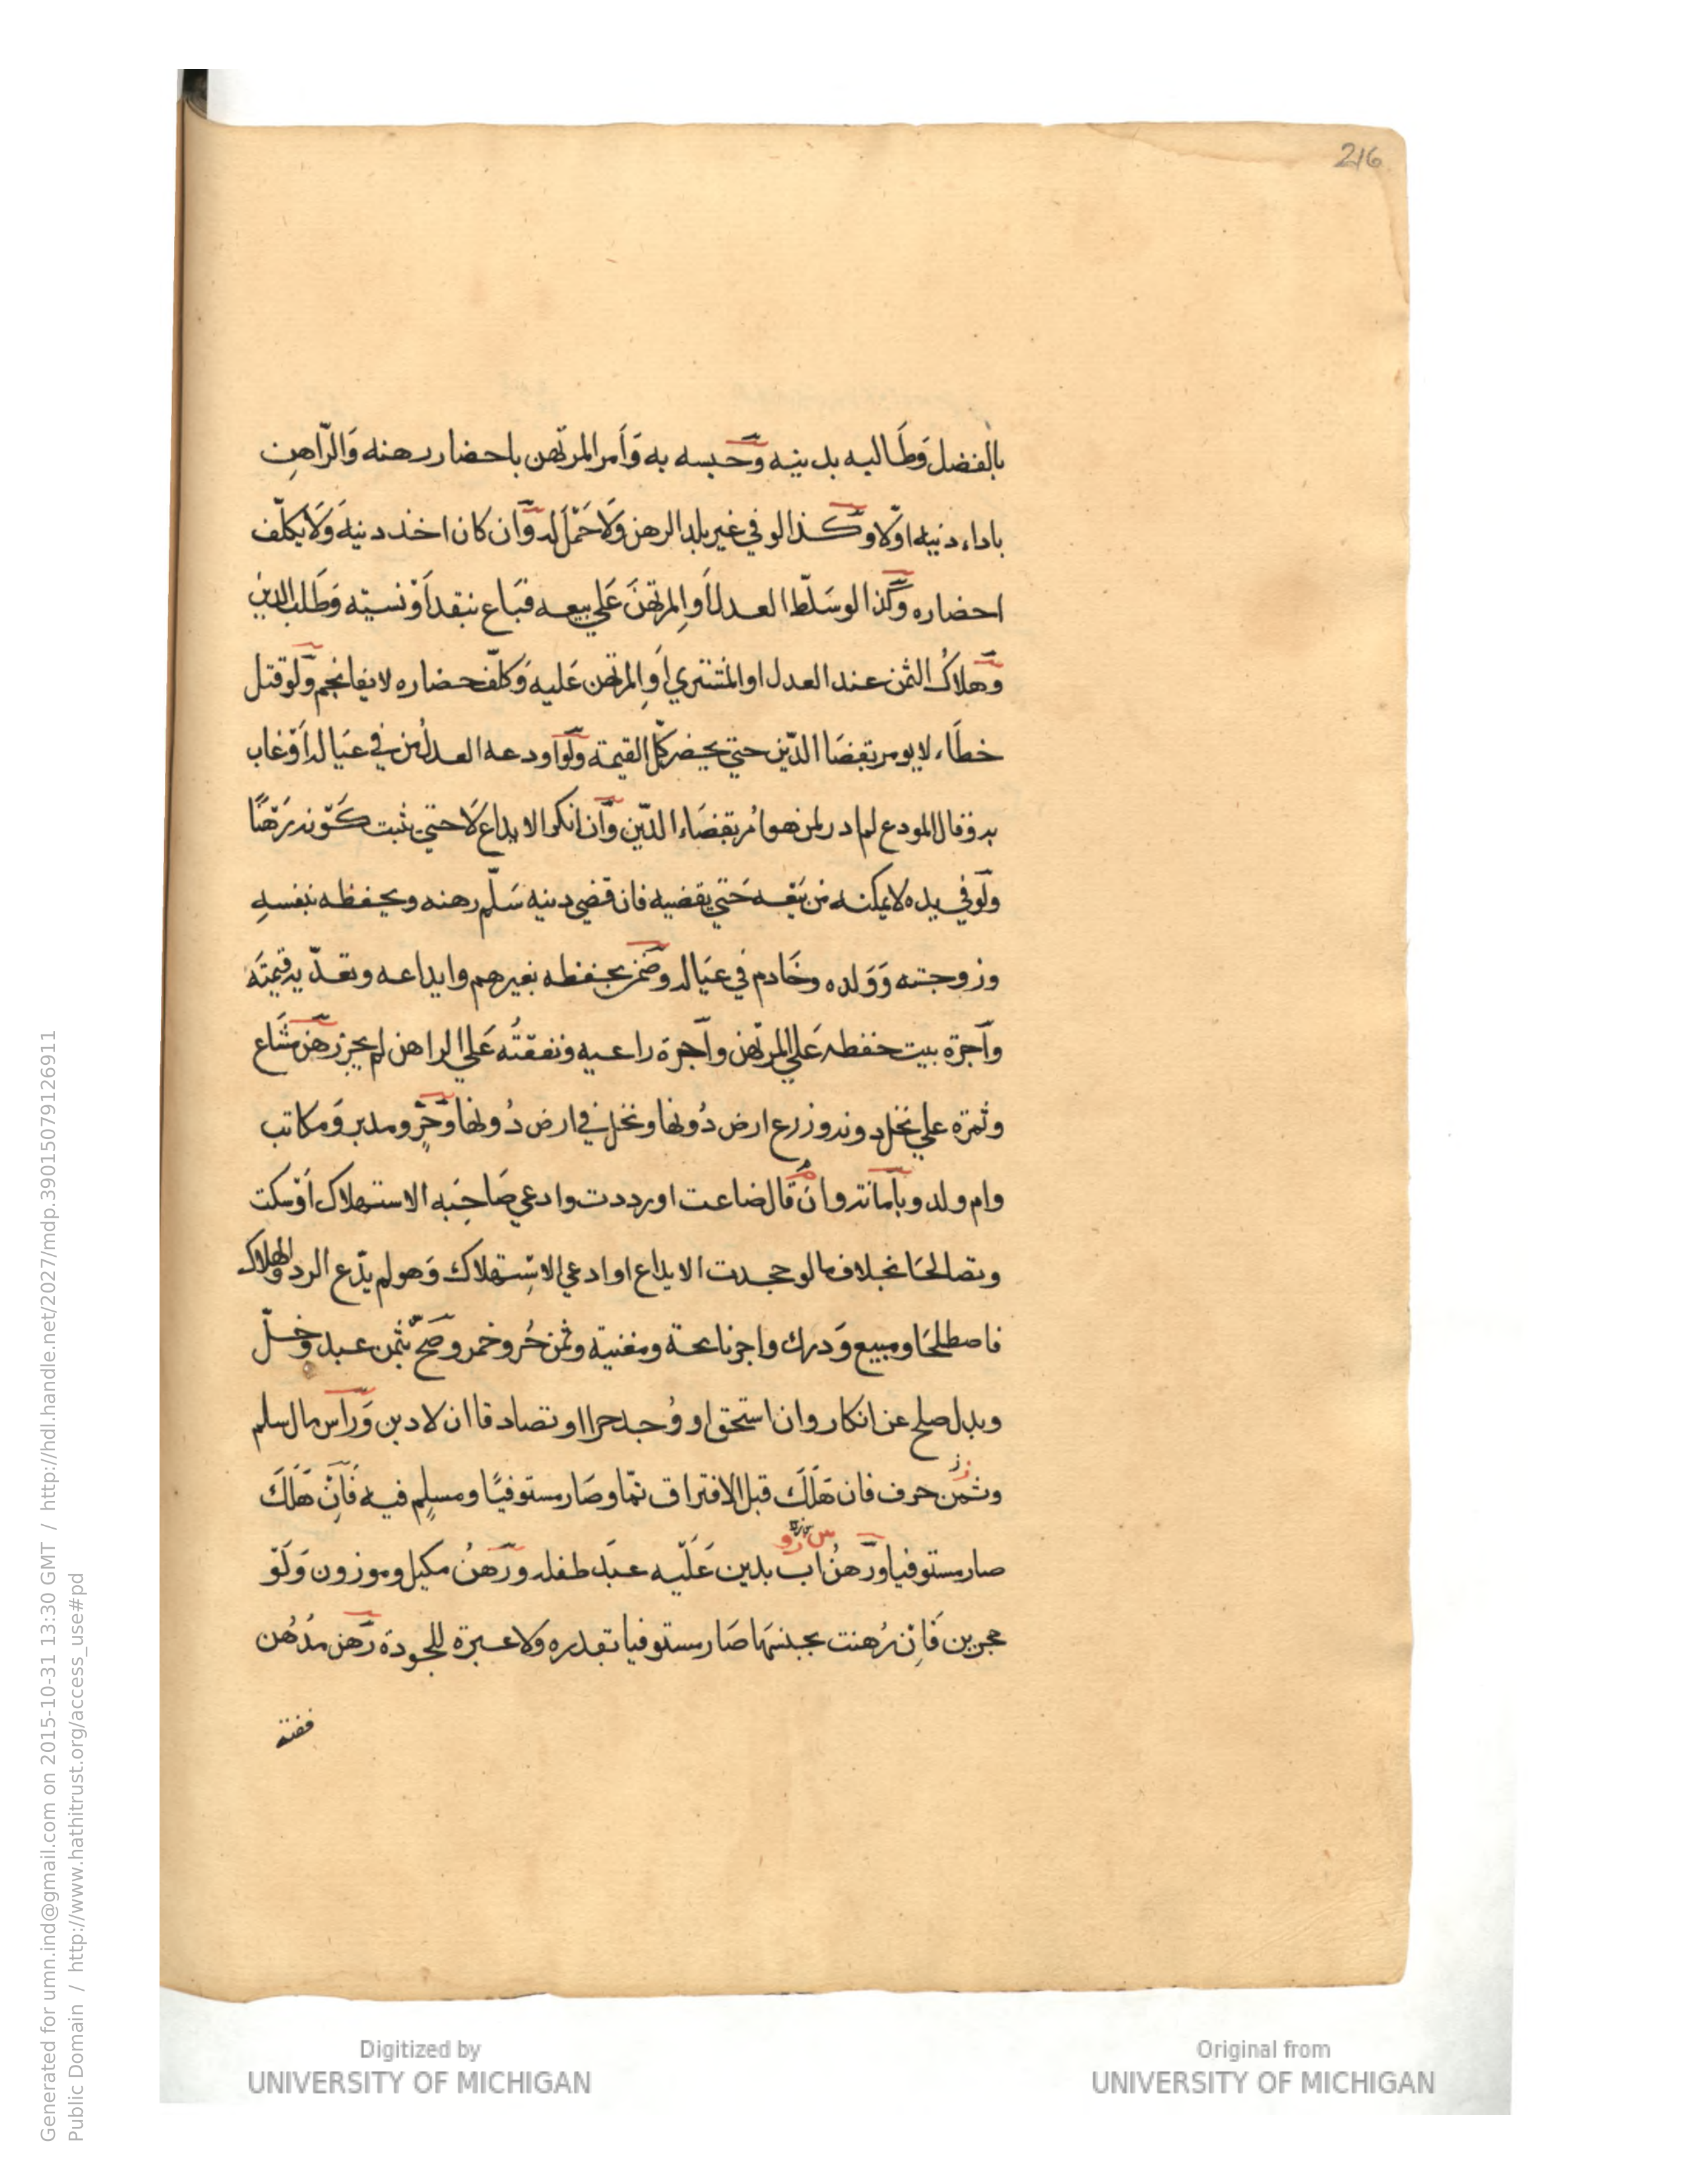 216
بالفضل وَطَالبه بدينه وَحبسه به وَاَمر المرتهن باحضار رهنه وَالرّاهن
باداء دينه اوّلا وَكذا لو في غير بلد الرهن وَلَا حَمْلَ له وَان كان اخذ دينه وَلَا يكلّف
احضاره وَكَذا لو سَلّط العدل اَو المرتهنَ عَلي بيعه فبَاع بنقد اَوْ نسيّه وَطَلب الدين
وَهلاكُ الثمن عند العدل او المشتري اَو المرتهن عَليه وَكلّف حضاره لا يفانجم وَلَو قتل
خطَاء لا يومر بقضَا الدّين حتي يحضر كلّ القيمة وَلَو اودعه العدلُ من في عيَاله اَوْ غاب
به وقال المودع لم ادر لمن هو اُمر بقضَاء الدّين وَان انكر الايداع لَا حتي يثبت كَوْنه رَهْنًا
وَلَو في يده لا يمكنه من بَيْعه حَتي يقضيه فان قضي دينه سَلّم رهنه ويحفظه بنفسهِ
وزوجته وَوَلده وخَادم في عيَاله وضَمن بحفظه بغيرهم وايداعه وتعدّيه قيمتَه
وَاجرة بيت حفظه عَلي المرتهن وَاجرة راعيه ونفقتُه عَلي الراهن لم يجز رَهنُ مشَاع
وثمرة علي نخل دونه وزرع ارض دُونها ونخل في ارض دُونها وَحُرّ ومدبر وَمكاتب
وام ولد وبامانة وان قال ضاعت او رددت وادعي صَاحبَه الاستهلاك اَوْ سكت
وتصالحَا بخلاف ما لو جحدت الايداع او ادعي الاسْتِهلاك وَهو لم يدّع الرد والهلاك
فاصطلحَا ومبيع وَدرك واجر نائحة ومغنية وثمن حُر وخمر وصَحّ بثمن عبد وَخلّ
وبدل صلح عن انكار وان استحق او وُجد حرا او تصادقا ان لا دين وَرَاس مال سلم
وثمن حرف فان هَلَكَ قبل الافتراق تمّا وصَار مستوفيًا ومسلمٍ فيه فَاِنْ هَلَكَ
صار مستوفيا وَرَهنُ اب بدين عَلَيْه عبدَ طفله وَرَهنُ مكيل وموزون وَلَوْ
حجرين فَاِن رُهنت بجنسها صَار مستوفيا بقدره وَلا عبرة للجودة رَهن مُدهُن